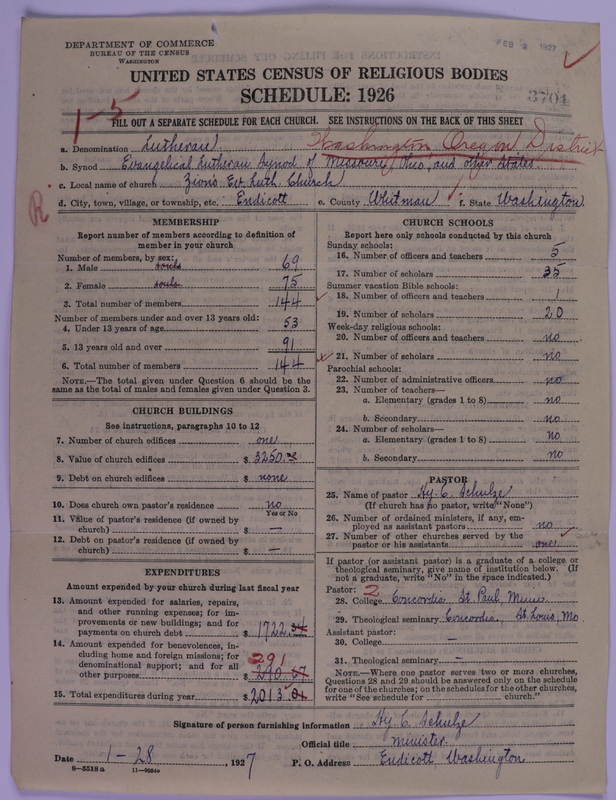 DEPARTMENT OF COMMERCE
BUREAU OF THE CENSUS
WASHINGTON
FEB 2 1927
UNITED STATES CENSUS OF RELIGIOUS BODIES
SCHEDULE: 1926
3701
1-5
FILL OUT A SEPARATE SCHEDULE FOR EACH CHURCH. SEE INSTRUCTIONS ON THE BACK OF THIS SHEET
a. Denomination Lutheran Washington Oregon District
b. Synod Evangelical Lutheran Synod of Missouri, Ohio, and other States
c. Local name of church Zions Ev. Luth. Church
d. City, town, village, or township, etc. Endicott e. County Whitman f. State Washington
R
MEMBERSHIP
Report number of members according to definition of member in your church
Number of members, by sex:
1. Male souls 69
2. Female souls 75
3. Total number of members 144
Number of members under and over 13 years old:
4. Under 13 years of age 53
5. 13 years old and over 91
6. Total number of members 144
NOTE.—The total given under Question 6 should be the same as the total of males and females given under Question 3.
CHURCH BUILDINGS
See instructions, paragraphs 10 to 12
7. Number of church edifices one
8. Value of church edifices $ 3250.
9. Debt on church edifices $ none
10. Does church own pastor's residence no
Yes or No
11. Value of pastor's residence (if owned by church) $ —
12. Debt on pastor's residence (if owned by church) $ —
EXPENDITURES
Amount expended by your church during last fiscal year
13. Amount expended for salaries, repairs, and other running expenses; for improvements or new buildings; and for payments on church debt $ 1722.34
14. Amount expended for benevolences, including home and foreign missions; for denominational support; and for all other purposes $ 291 290.67
15. Total expenditures during year $ 2013.01
CHURCH SCHOOLS
Report here only schools conducted by this church
Sunday schools:
16. Number of officers and teachers 5
17. Number of scholars 35
Summer vacation Bible schools:
18. Number of officers and teachers 1
19. Number of scholars 20
Week-day religious schools:
20. Number of officers and teachers no
21. Number of scholars no
Parochial schools:
22. Number of administrative officers no
23. Number of teachers—
a. Elementary (grades 1 to 8) no
b. Secondary no
24. Number of scholars—
a. Elementary (grades 1 to 8) no
b. Secondary no
PASTOR
25. Name of pastor Hy. C. Schulze
(If church has no pastor, write "None")
26. Number of ordained ministers, if any, employed as assistant pastors no
27. Number of other churches served by the pastor or his assistants one
If pastor (or assistant pastor) is a graduate of a college or theological seminary, give name of institution below. (If not a graduate, write "No" in the space indicated.)
Pastor: 2
28. College Concordia St. Paul Minn.
29. Theological seminary Concordia. St. Louis, Mo
Assistant pastor:
30. College —
31. Theological seminary —
NOTE.—Where one pastor serves two or more churches, Questions 28 and 29 should be answered only on the schedule for one of the churches; on the schedules for the other churches, write "See schedule for church."
Signature of person furnishing information Hy. C. Schulze
Official title minister
Date 1-28, 1927 P. O. Address Endicott, Washington
8-5518a 11-9084